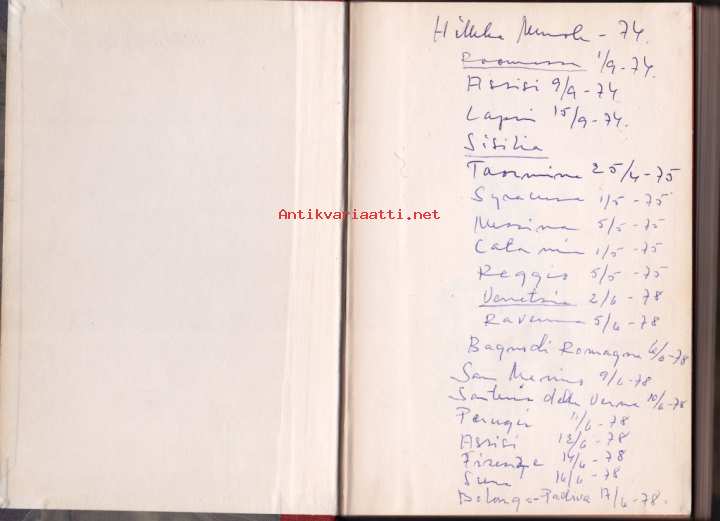 Hilkka - 74.
Roomassa 1/9-74.
Assisi 9/9-74
Capri 15/9-74.
Sisilia
Taormina 25/4-75
Syracusa 1/5-75
Antikvariaatti.net
Messina 5/5-75
Catania 1/5-75
Reggio 5/5-75
Venetsia 2/6-78
Ravenna 5/6-78
Bagno di Romagna 6/6-78
San Marino 9/6-78
della Verna 10/6-78
Perugia 11/6-78
Assisi 12/6-78
Firenze 14/6-78
16/6-78
Bologna-Padova 17/6-78.